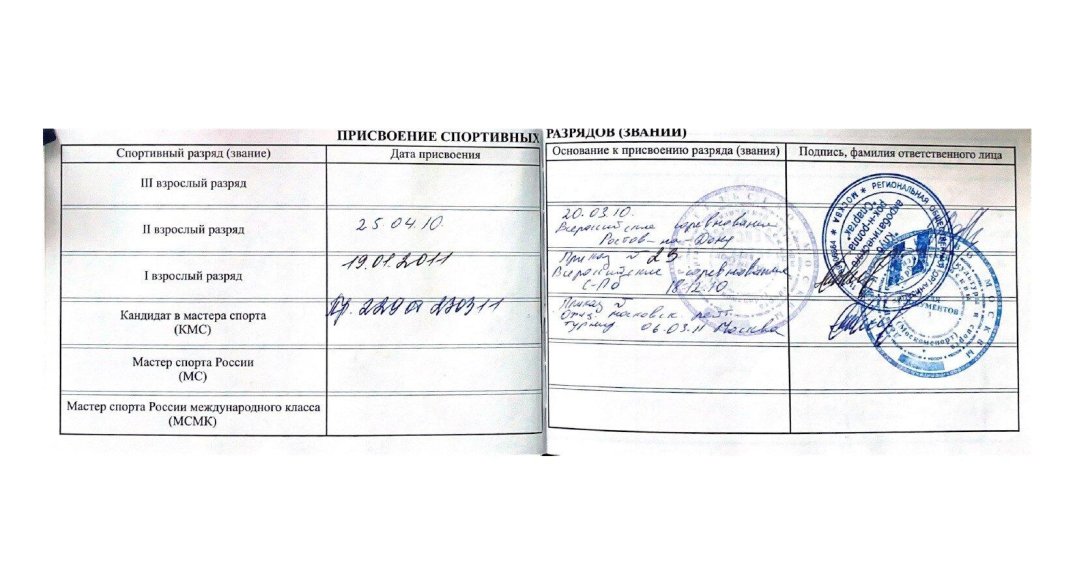 ПРИСВОЕНИЕ СПОРТИВНЫХ РАЗРЯДОВ (ЗВАНИЙ)
Спортивный разряд (звание) Дата присвоения Основание к присвоению разряда (звания) Подпись, фамилия ответственного лица
III взрослый разряд
II взрослый разряд 25.04.10. 20.03.10.
Всероссийские соревнования
Ростов-на-Дону
I взрослый разряд 19.01.2011 Приказ № 23
Всероссийские соревнования
С-Пб 18.12.10
Кандидат в мастера спорта
(КМС) Пр. 229 от 230311 Приказ №
московск рейт.
турнир 06.03.11 Москва
Мастер спорта России
(МС)
Мастер спорта России международного класса
(МСМК)
РЕГИОНАЛЬНАЯ ОБЩЕСТВЕННАЯ
МОСКВА
Клуб
акробатического
рок-н-ролла
ДОКУМЕНТОВ
(Москомспорт)